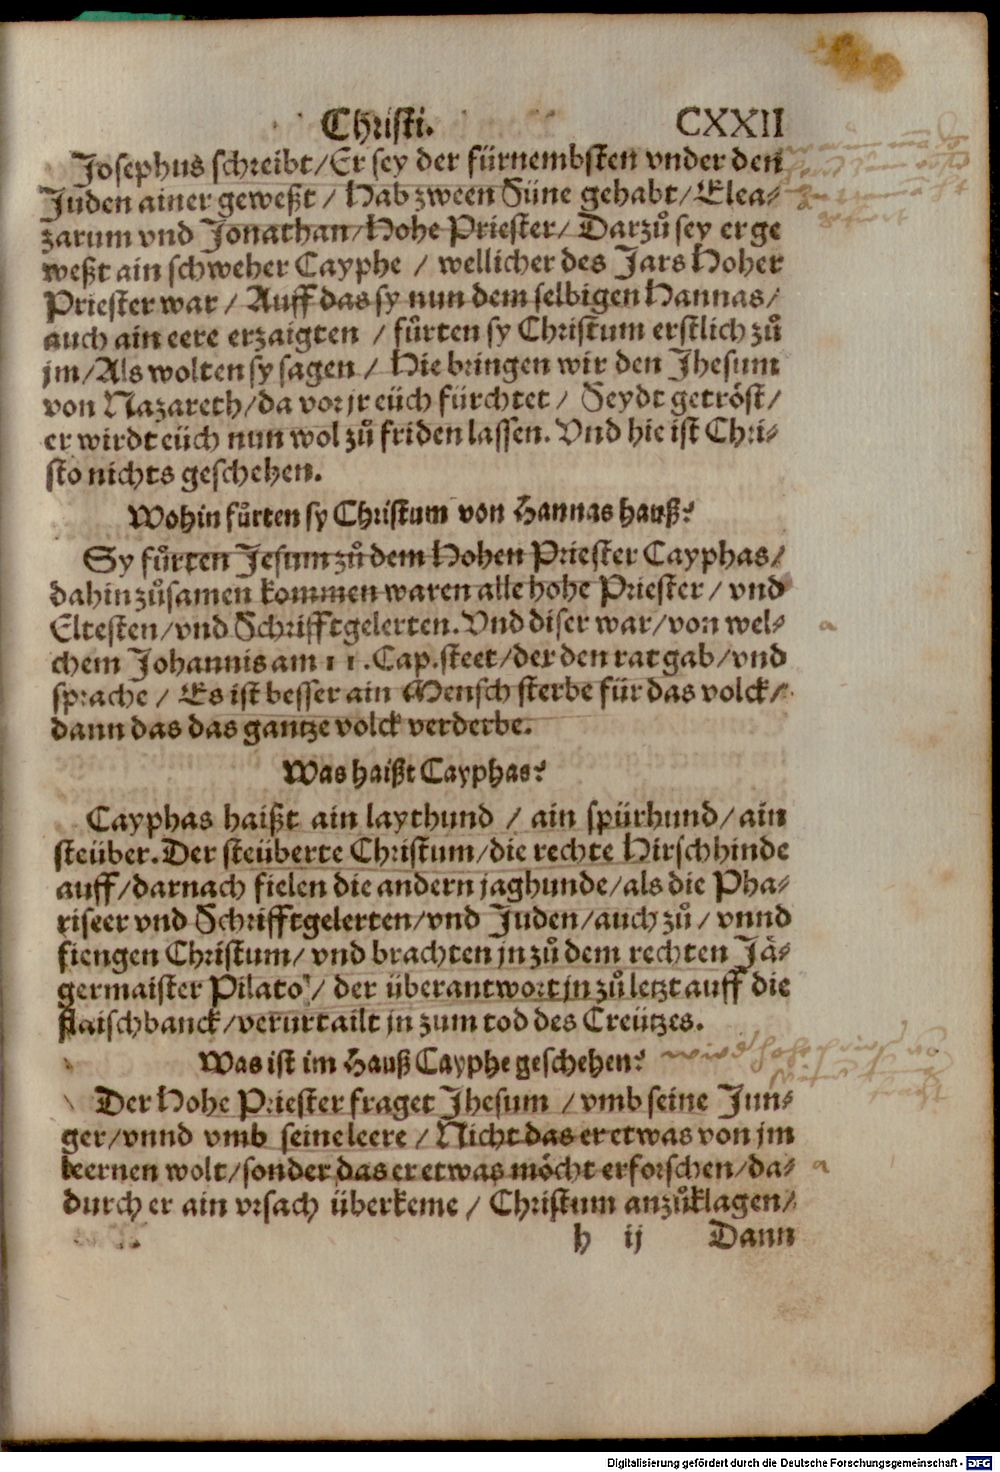 Christi. CXXII
Josephus schreibt/Er sey der fürnembsten vnder den
Juden ainer geweßt / Hab zween Süne gehabt/ Elea-
zarum vnd Jonathan/Hohe Priester/ Darzů sey er ge
weßt ain schweher Cayphe / wellicher des Jars Hoher
Priester war / Auff das sy nun dem selbigen Hannas/
auch ain eere erzaigten / fůrten sy Christum erstlich zů
jm/Als wolten sy sagen / Hie bringen wir den Jhesum
von Nazareth/da vor jr eüch fürchtet / Seydt getröst/
er wirdt eüch nun wol zů friden lassen. Vnd hie ist Chri-
sto nichts geschehen.
Wohin fůrten sy Christum von Hannas hauß?
Sy fůrten Jesum zů dem Hohen Priester Cayphas/
dahin zůsamen kommen waren alle hohe Priester / vnd
Eltesten/vnd Schrifftgelerten. Vnd diser war/von wel-
chem Johannis am 11.Cap.steet/der den rat gab/vnd
sprache / Es ist besser ain Mensch sterbe für das volck/
dann das das gantze volck verderbe.
Was haißt Cayphas?
Cayphas haißt ain laythund / ain spürhund/ ain
steüber. Der steüberte Christum/die rechte Hirschhinde
auff/darnach fielen die andern jaghunde/als die Pha-
riseer vnd Schrifftgelerten/vnd Juden/auch zů / vnnd
fiengen Christum/ vnd brachten jn zů dem rechten Jä-
germaister Pilato / der überantwort jn zů letzt auff die
flaischbanck/verurtailt jn zum tod des Creützes.
Was ist im Hauß Cayphe geschehen?
Der Hohe Priester fraget Jhesum / vmb seine Jun-
ger/vnnd vmb seine leere / Nicht das er etwas von jm
leernen wolt/sonder das er etwas möcht erforschen/da-
durch er ain vrsach überkeme / Christum anzůklagen/
h ij Dann
Digitalisierung gefördert durch die Deutsche Forschungsgemeinschaft - DFG